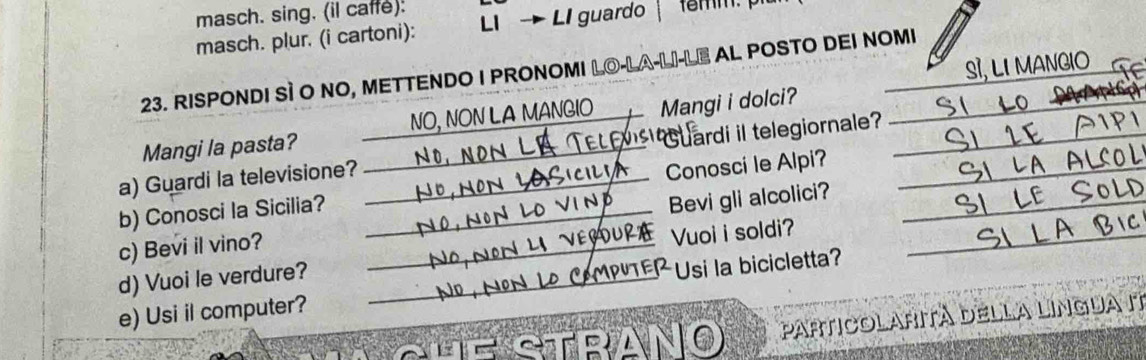 masch. sing. (il caffè):
masch. plur. (i cartoni): LI → LI guardo
23. RISPONDI SÌ O NO, METTENDO I PRONOMI LO-LA-LI-LE AL POSTO DEI NOMI
Mangi la pasta? NO, NON LA MANGIO Mangi i dolci? SÌ, LI MANGIO
a) Guardi la televisione? NO, NON LA TELEVISIONE Guardi il telegiornale? SI LO
b) Conosci la Sicilia? NO, NON LA SICILIA Conosci le Alpi? SI LE AIPI
c) Bevi il vino? NO, NON LO VINO Bevi gli alcolici? SI LA ALCOLI
d) Vuoi le verdure? NO, NON LI VERDURE Vuoi i soldi? SI LE SOLD
e) Usi il computer? NO, NON LO COMPUTER Usi la bicicletta? SI LA BIC
CHE STRANO PARTICOLARITÀ DELLA LINGUA IT